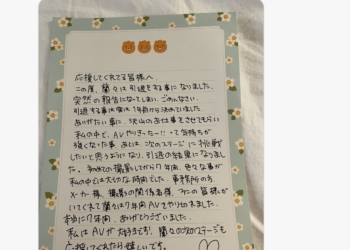 応援してくれてる皆様へ
この度、蘭々は引退をする事になりました。
突然の報告になってしまい、ごめんなさい。
引退する事は
から決めていました。
ありがたい事に、沢山のお仕事をさせてもらい
私の中で、AVやりきったー!!って気持ちが
強くなった事、あとは、次のステージに挑戦
したいと思うようになり、引退の結果になりま
した。初めての撮影してから7年間、色々な事が
私の中では大切な時間でした。事務所の方、
メーカー様、撮影の関係者様、ファンの皆様が
いてくれて蘭々は7年間AVをやりきれました。
本当に7年間、ありがとうございました。
私はAVが大好きです! 蘭々の次のステージも
応援してくれたら嬉しいです。